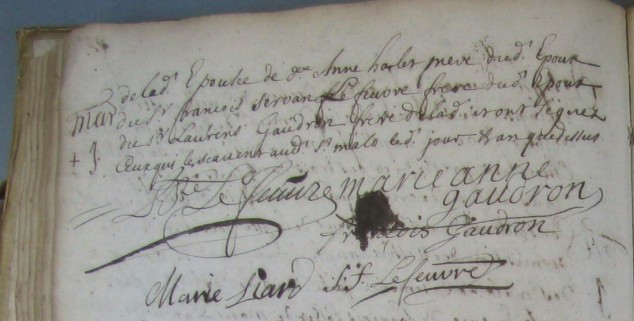 de lad. Epouse de dlle Anne harler mere dud. Epoux
du sr francois servan Le feuvre frere dud. epoux
mar du sr Laurens Gaudron frere de lad. et ont signez
+ J. Ceux qui le scavent aud. st. malo led. jour & an que dessus
Le feuvre marie anne
gaudron
francois Gaudron
Marie Liard S. f. Le feuvre